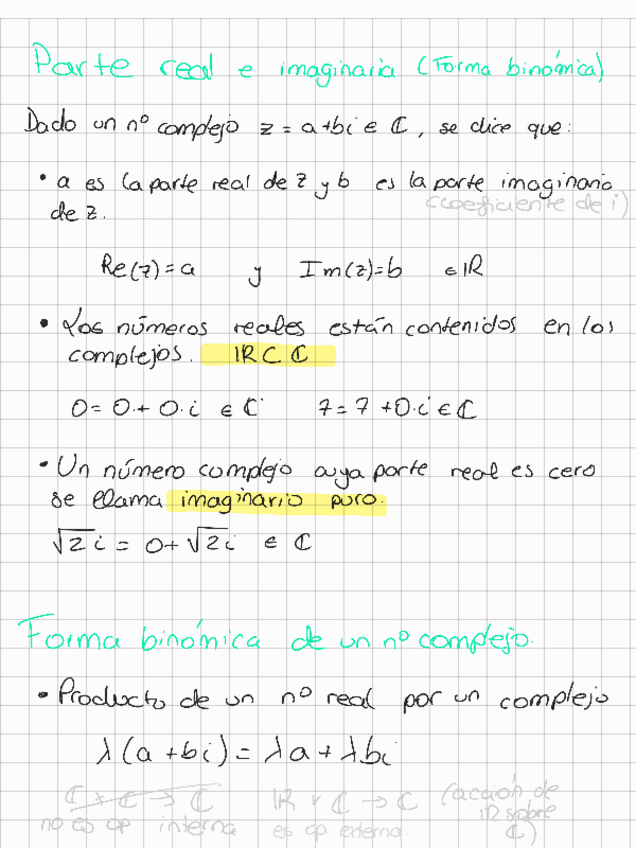 Parte real e imaginaria (Forma binómica)
Dado un nº complejo z = a+bi ∈ ℂ, se dice que:
• a es la parte real de z y b es la parte imaginaria
(coeficiente de i)
de z.
Re(z)=a y Im(z)=b ∈ ℝ
• Los números reales están contenidos en los
complejos. ℝ ⊂ ℂ
0 = 0 + 0·i ∈ ℂ 7 = 7 + 0·i ∈ ℂ
• Un número complejo cuya parte real es cero
se llama imaginario puro.
√2 i = 0 + √2 i ∈ ℂ
Forma binómica de un nº complejo.
• Producto de un nº real por un complejo
λ(a + bi) = λa + λbi
ℂ × ℂ → ℂ ℝ × ℂ → ℂ (acción de
no es op interna es op externa. ℝ sobre
ℂ)